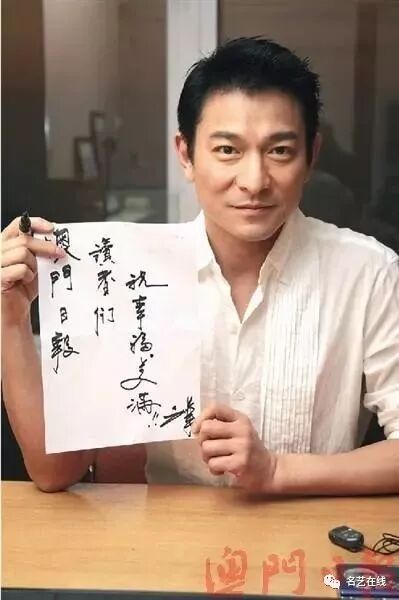 澳門日報
讀者們
祝幸福美滿!!
澳門日報
名艺在线